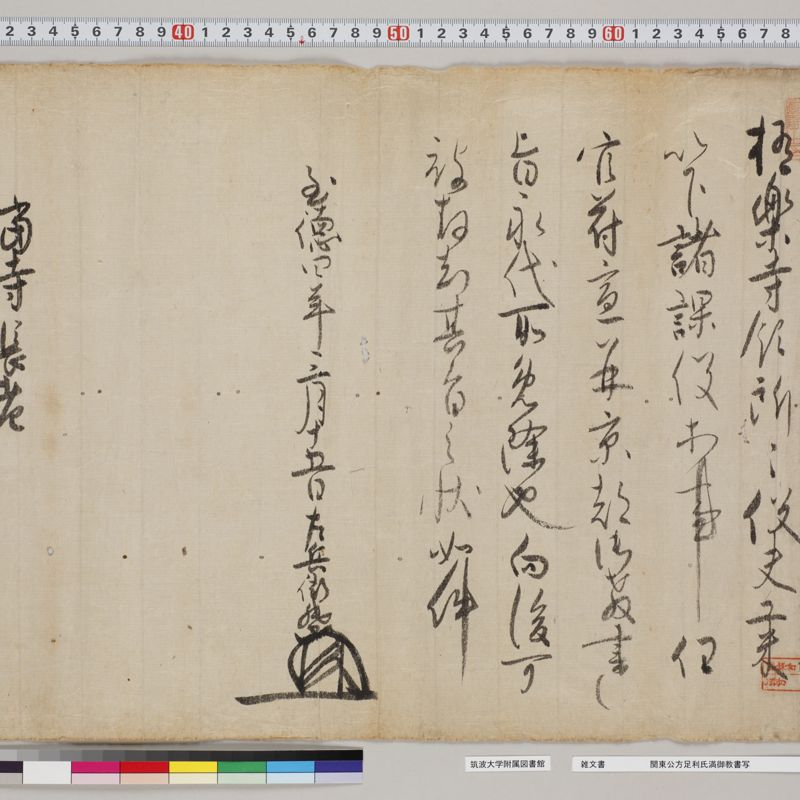 2 3 4 5 6 7 8 9 40 1 2 3 4 5 6 7 8 9 50 1 2 3 4 5 6 7 8 9 60 1 2 3 4 5 6 7 8
極楽寺領所之役夫工米
以下諸課役等事但
官符宣并京都御教書之
旨永代所免除也向後可
被存知其旨之状如件
至徳四年月十五日左兵衛督
當寺長老
筑波大学附属図書館
雑文書 関東公方足利氏満御教書写